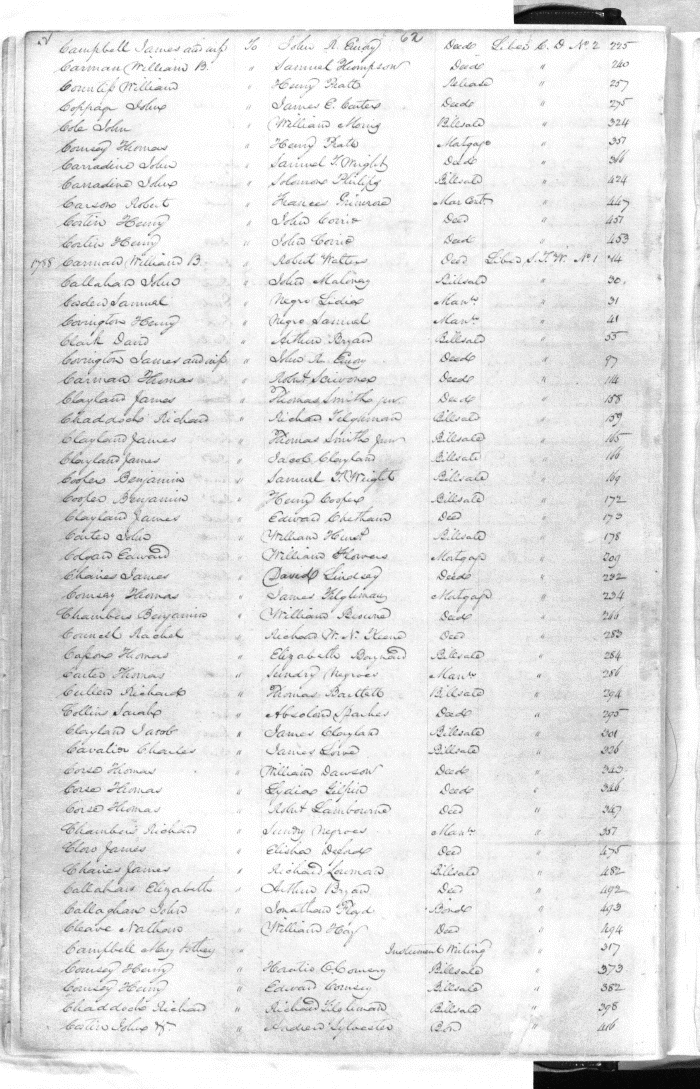 62
Campbell James and wife To John R. Emory Deed Liber C. D No. 2 225
Carman William B. " Samuel Thompson Deed " 240
Councill William " Henry Pratt Release " 257
Coppage John " James E. Carter Deed " 275
Cole John " William Morris Billsale " 324
Comsey Thomas " Henry Pratt Matgage " 351
Carradine John " Samuel T. Wright Deed " 366
Carradine John " Solomon Philips Billsale " 424
Carson Robert " Frances Primrose Mar Cert " 447
Catlin Henry " John Corrie Deed " 451
Catlin Henry " John Corrie Deed " 453
1788 Carman William B. " Robert Walters Deed Liber S. T. W. No. 1 14
Callahan John " John Maloney Billsale " 30
Cosden Samuel " Negro Lidia Manu " 31
Covington Henry " Negro Samuel Manu " 41
Clark David " Arthur Bryan Billsale " 55
Covington James and wife " John R. Emory Deed " 97
Carman Thomas " Robert Scrivener Deed " 114
Clayland James " Thomas Smith junr Deed " 158
Chaddock Richard " Richard Tilghman Billsale " 159
Clayland James " Thomas Smith Junr Billsale " 165
Clayland James " Jacob Clayland Billsale " 166
Cooper Benjamin " Samuel T. Wright Billsale " 169
Cooper Benjamin " Henry Cooper Billsale " 172
Clayland James " Edward Chetham Deed " 173
Carter John " William Hurst Billsale " 178
Edward " William Flowers Matgage " 209
Chaires James " David Lindsey Deed " 232
Comsey Thomas " James Tilghman Matgage " 234
Chambers Benjamin " William Browne Deed " 266
Councill Rachel " Richard W. N. Keene Deed " 283
Thomas " Elizabeth Baynard Billsale " 284
Carter Thomas " Sundry Negroes Manu " 286
Cullen Richard " Thomas Bartlett Billsale " 294
Collins Sarah " Absolond Sparkes Deed " 295
Clayland Jacob " James Clayland Billsale " 301
Cavalier Charles " James Lowe Billsale " 326
Corse Thomas " William Dawson Deed " 343
Corse Thomas " Lydia Gilpin Deed " 346
Corse Thomas " Robert Lambourne Deed " 347
Chambers Richard " Sundry Negroes Manu " 357
Clow James " Elisha Deed " 475
Chaires James " Richard Lowman Billsale " 482
Callahan Elizabeth " Arthur Bryan Deed " 492
Callaghan John " Jonathan Floyd Bond " 493
Cleave Nathan " William Hoy Deed " 494
Campbell Mary " Instrument Writing " 317
Comsey Henry " Horatio C. Comsey Billsale " 373
Comsey Henry " Edward Comsey Billsale " 382
Chaddock Richard " Richard Tilghman Billsale " 398
Catlin John " Andrew Sylvester " 416